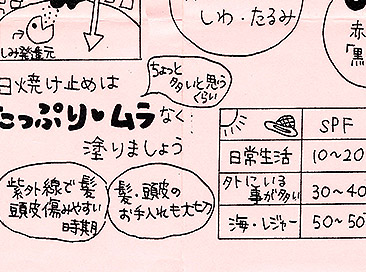 しわ・たるみ
しみ発進元
日焼け止めは
ちょっと
多いと思う
くらい
たっぷり♥ムラなく
塗りましょう
紫外線で髪
頭皮傷みやすい
時期
髪・頭皮の
お手入れも大切
SPF
日常生活 10~20
外にいる
事が多い 30~40
海・レジャー 50~50